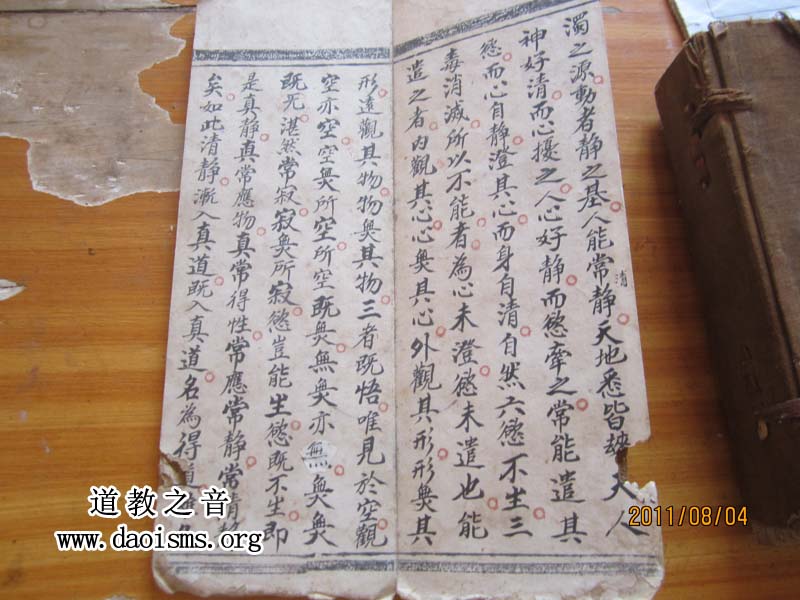 濁之源動者静之基人能常静天地悉皆歸夫人
清
神好清而心擾之人心好静而慾牽之常能遣其
慾而心自静澄其心而身自清自然六慾不生三
毒消滅所以不能者為心未澄慾未遣也能
遣之者内觀其心心無其心外觀其形形無其
形遠觀其物物無其物三者既悟唯見於空觀
空亦空空無所空所空既無無無亦無無無
既无湛然常寂寂無所寂慾豈能生慾既不生即
是真静真常應物真常得性常應常静常清静
矣如此清静漸入真道既入真道名為得道
道教之音
www.daoisms.org
2011/08/04